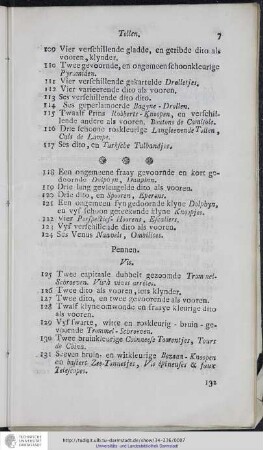 Tollen. 7
109 Vier verschillende gladde, en geribde dito als
vooren, klynder.
110 Twee gevoornde, en ongemeen schoonkleurige
Pyramiden.
111 Vier verschillende gakartelde Drolletjes.
112 Vier varieerende dito als vooren.
113 Ses verschillende dito dito.
114 Ses geperlamoerde Bagyne-Drollen.
115 Twaalf Prins Robberts-Knoopen, en verschil-
lende andere als vooren. Boutons de Camisole.
116 Drie schoone roskleurige Langleevende Tollen,
Culs de Lampe.
117 Ses dito, en Turksche Tulbandjes.
118 Een ongemeene fraay gevoornde en kort ge-
doornde Dolphyn, Dauphin.
119 Drie lang gevleugelde dito als vooren.
120 Drie dito, en Spooren, Eperons.
121 Een ongemeene fyn gedoornde klyne Dolphyn,
en vyf schoon gemeekende klyne Knopjes.
122 Vier Perspectief Hoorens, Escaliers.
123 Vyf verschillende dito als vooren.
124 Ses Venus Navels, Ombilics.
Pennen.
Vis.
125 Twee capitaale dubbelt gezoomde Trommel-
Schroeven.
126 Twee dito als vooren, iets klynder.
127 Twee dito, en twee gevoorende als vooren.
128 Twaalf klyne omwonde en fraaye kleurige dito
als vooren.
129 Vyf swarte, witte en roskleurig-bruin-ge-
voornde Trommel-Schroeven.
130 Twee bruinkleurige Chineese Toorentjes, Tours
de China.
131 Seeven bruin- en witkleurige Bezaan-Knoopen
en bastert Zee-Tonnetjes, Vis épineuses & faux
Telescopes.
132
http://tudigit.ulb.tu-darmstadt.de/show/34-236/0087
Universitäts- und Landesbibliothek Darmstadt
TECHNISCHE
UNIVERSITÄT
DARMSTADT